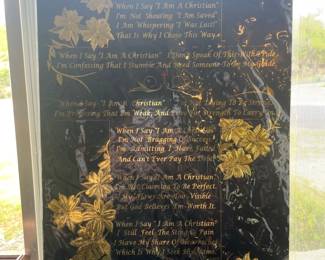 When I Say "I Am A Christian"
I'm Not Shouting "I Am Saved"
I Am Whispering "I Was Lost"
That Is Why I Chose This Way.
When I Say "I Am A Christian" I Don't Speak Of This With Pride
I'm Confessing That I Stumble And Need Someone To Be My Guide.
When I Say "I Am A Christian" I'm Not Trying To Be Strong
I'm Professing That I'm Weak, And Pray For Strength To Carry On.
When I Say "I Am A Christian"
I'm Not Bragging Of Success
I'm Admitting I Have Failed
And Can't Ever Pay The Debt
When I Say "I Am A Christian"
I'm Not Claiming To Be Perfect,
My Flaws Are Too Visible
But God Believes I'm Worth It.
When I Say "I Am A Christian"
I Still Feel The Sting Of Pain
I Have My Share Of Heartaches
Which Is Why I Seek His Name.